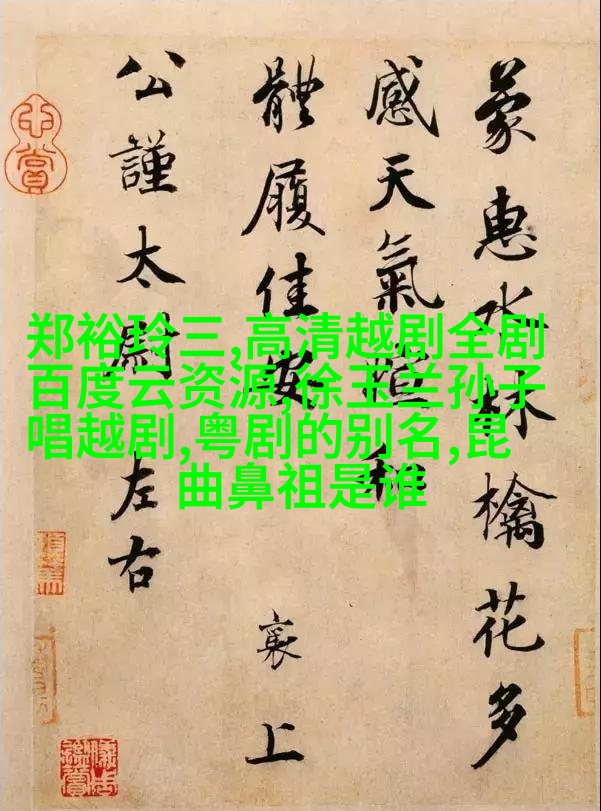 郑裕玲三,高清越剧全剧
百度云资源,徐玉兰孙子
唱越剧,粤剧的别名,昆
曲鼻祖是谁
蒙惠水林檎花多
感天氣暄和
體履佳安
襄上
公謹太尉左右